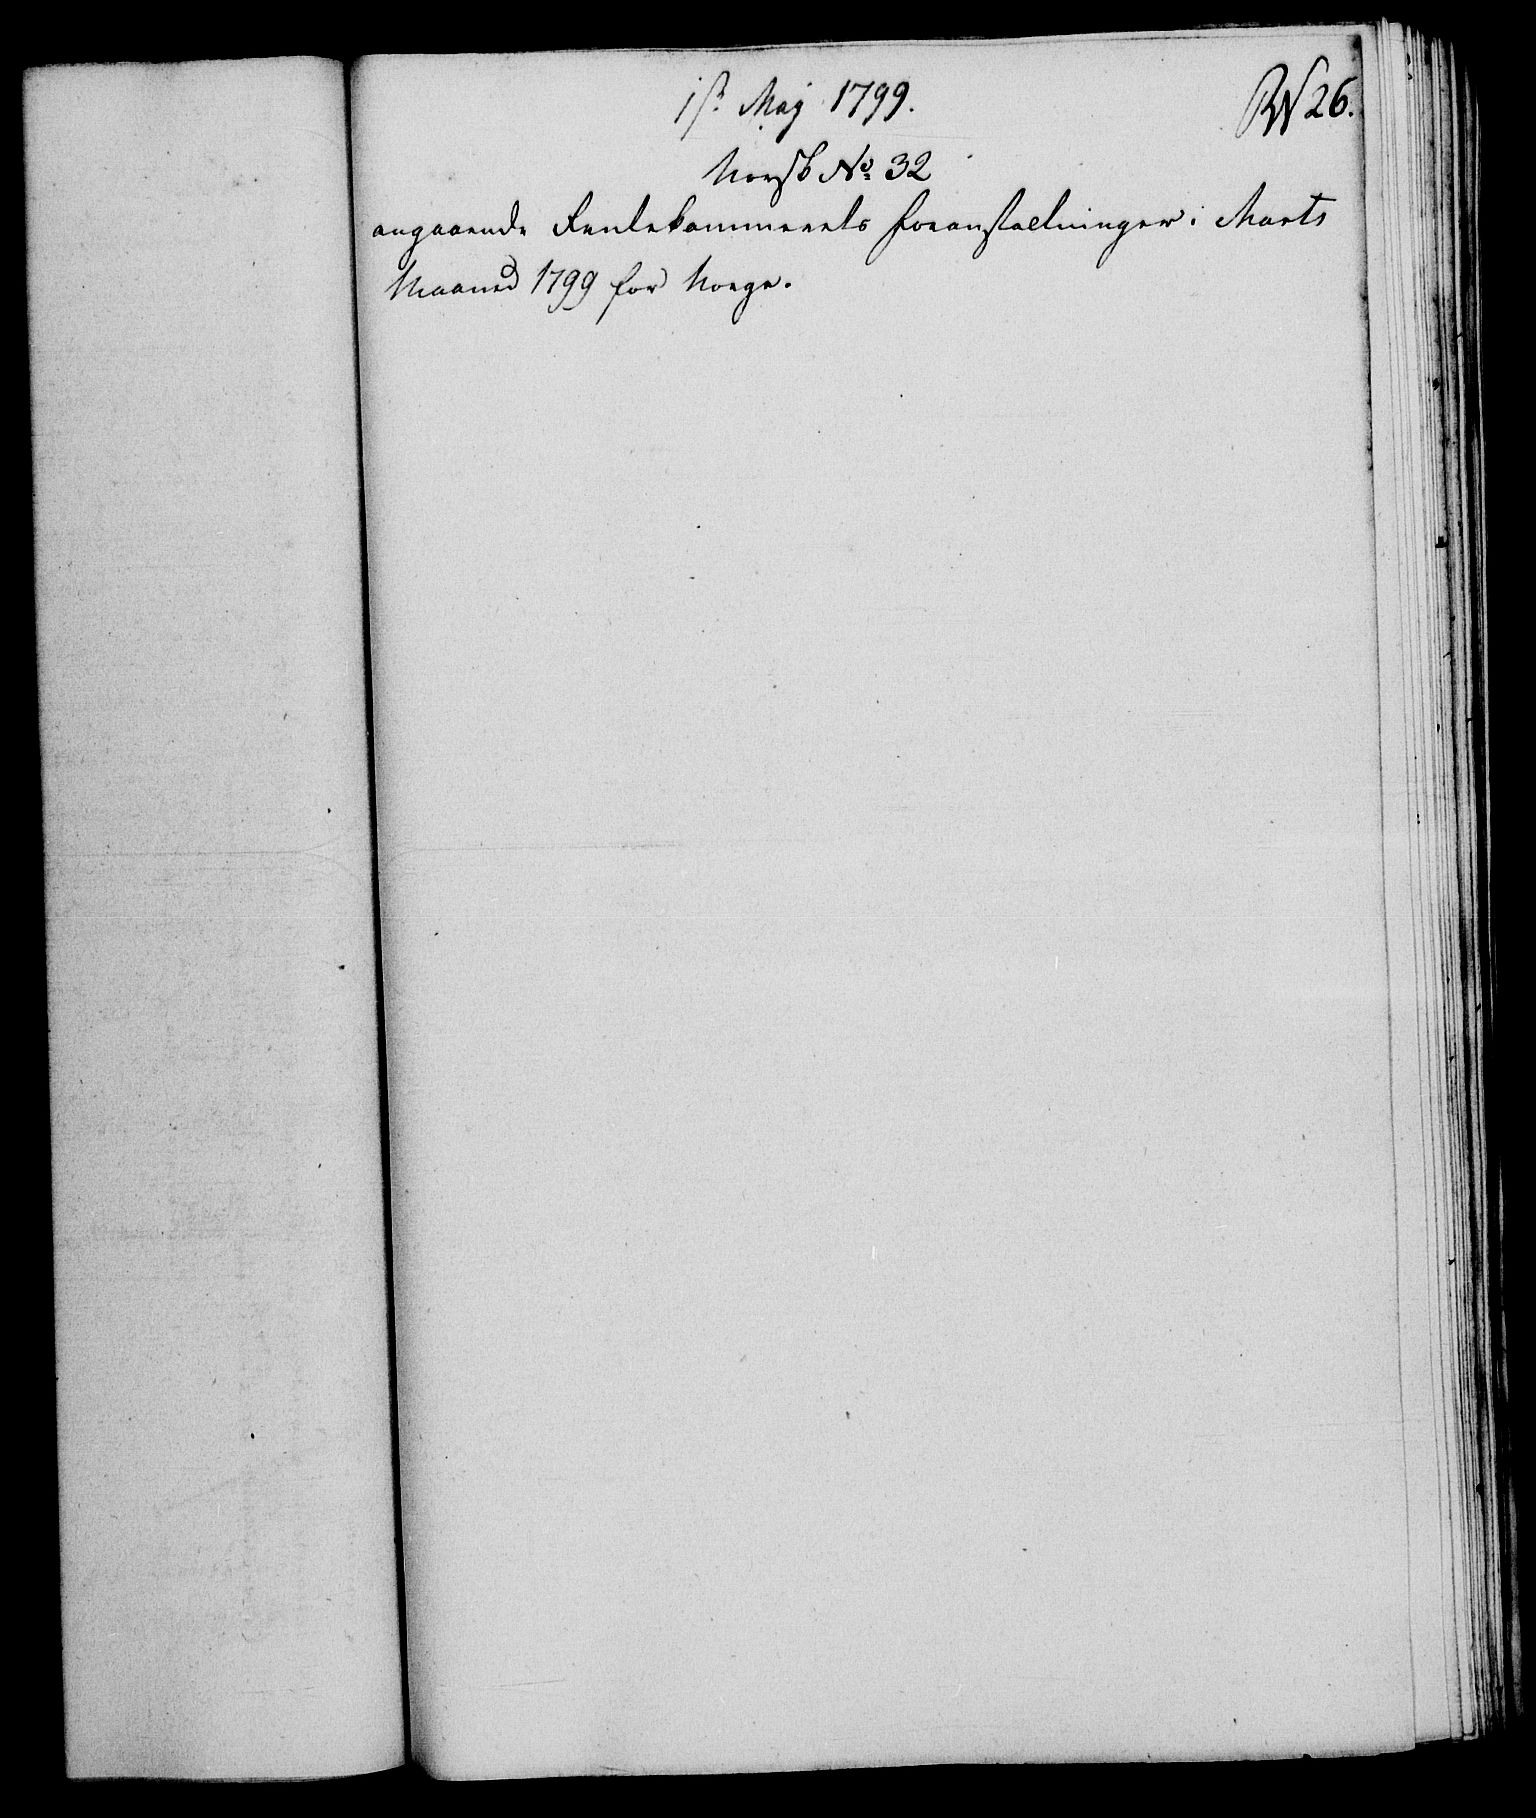 1st Maÿ 1799.
RW 26.
Norsk No: 32
angaaende Rentekammerets Foranstaltninger i Marts
Maaned 1799 for Norge.